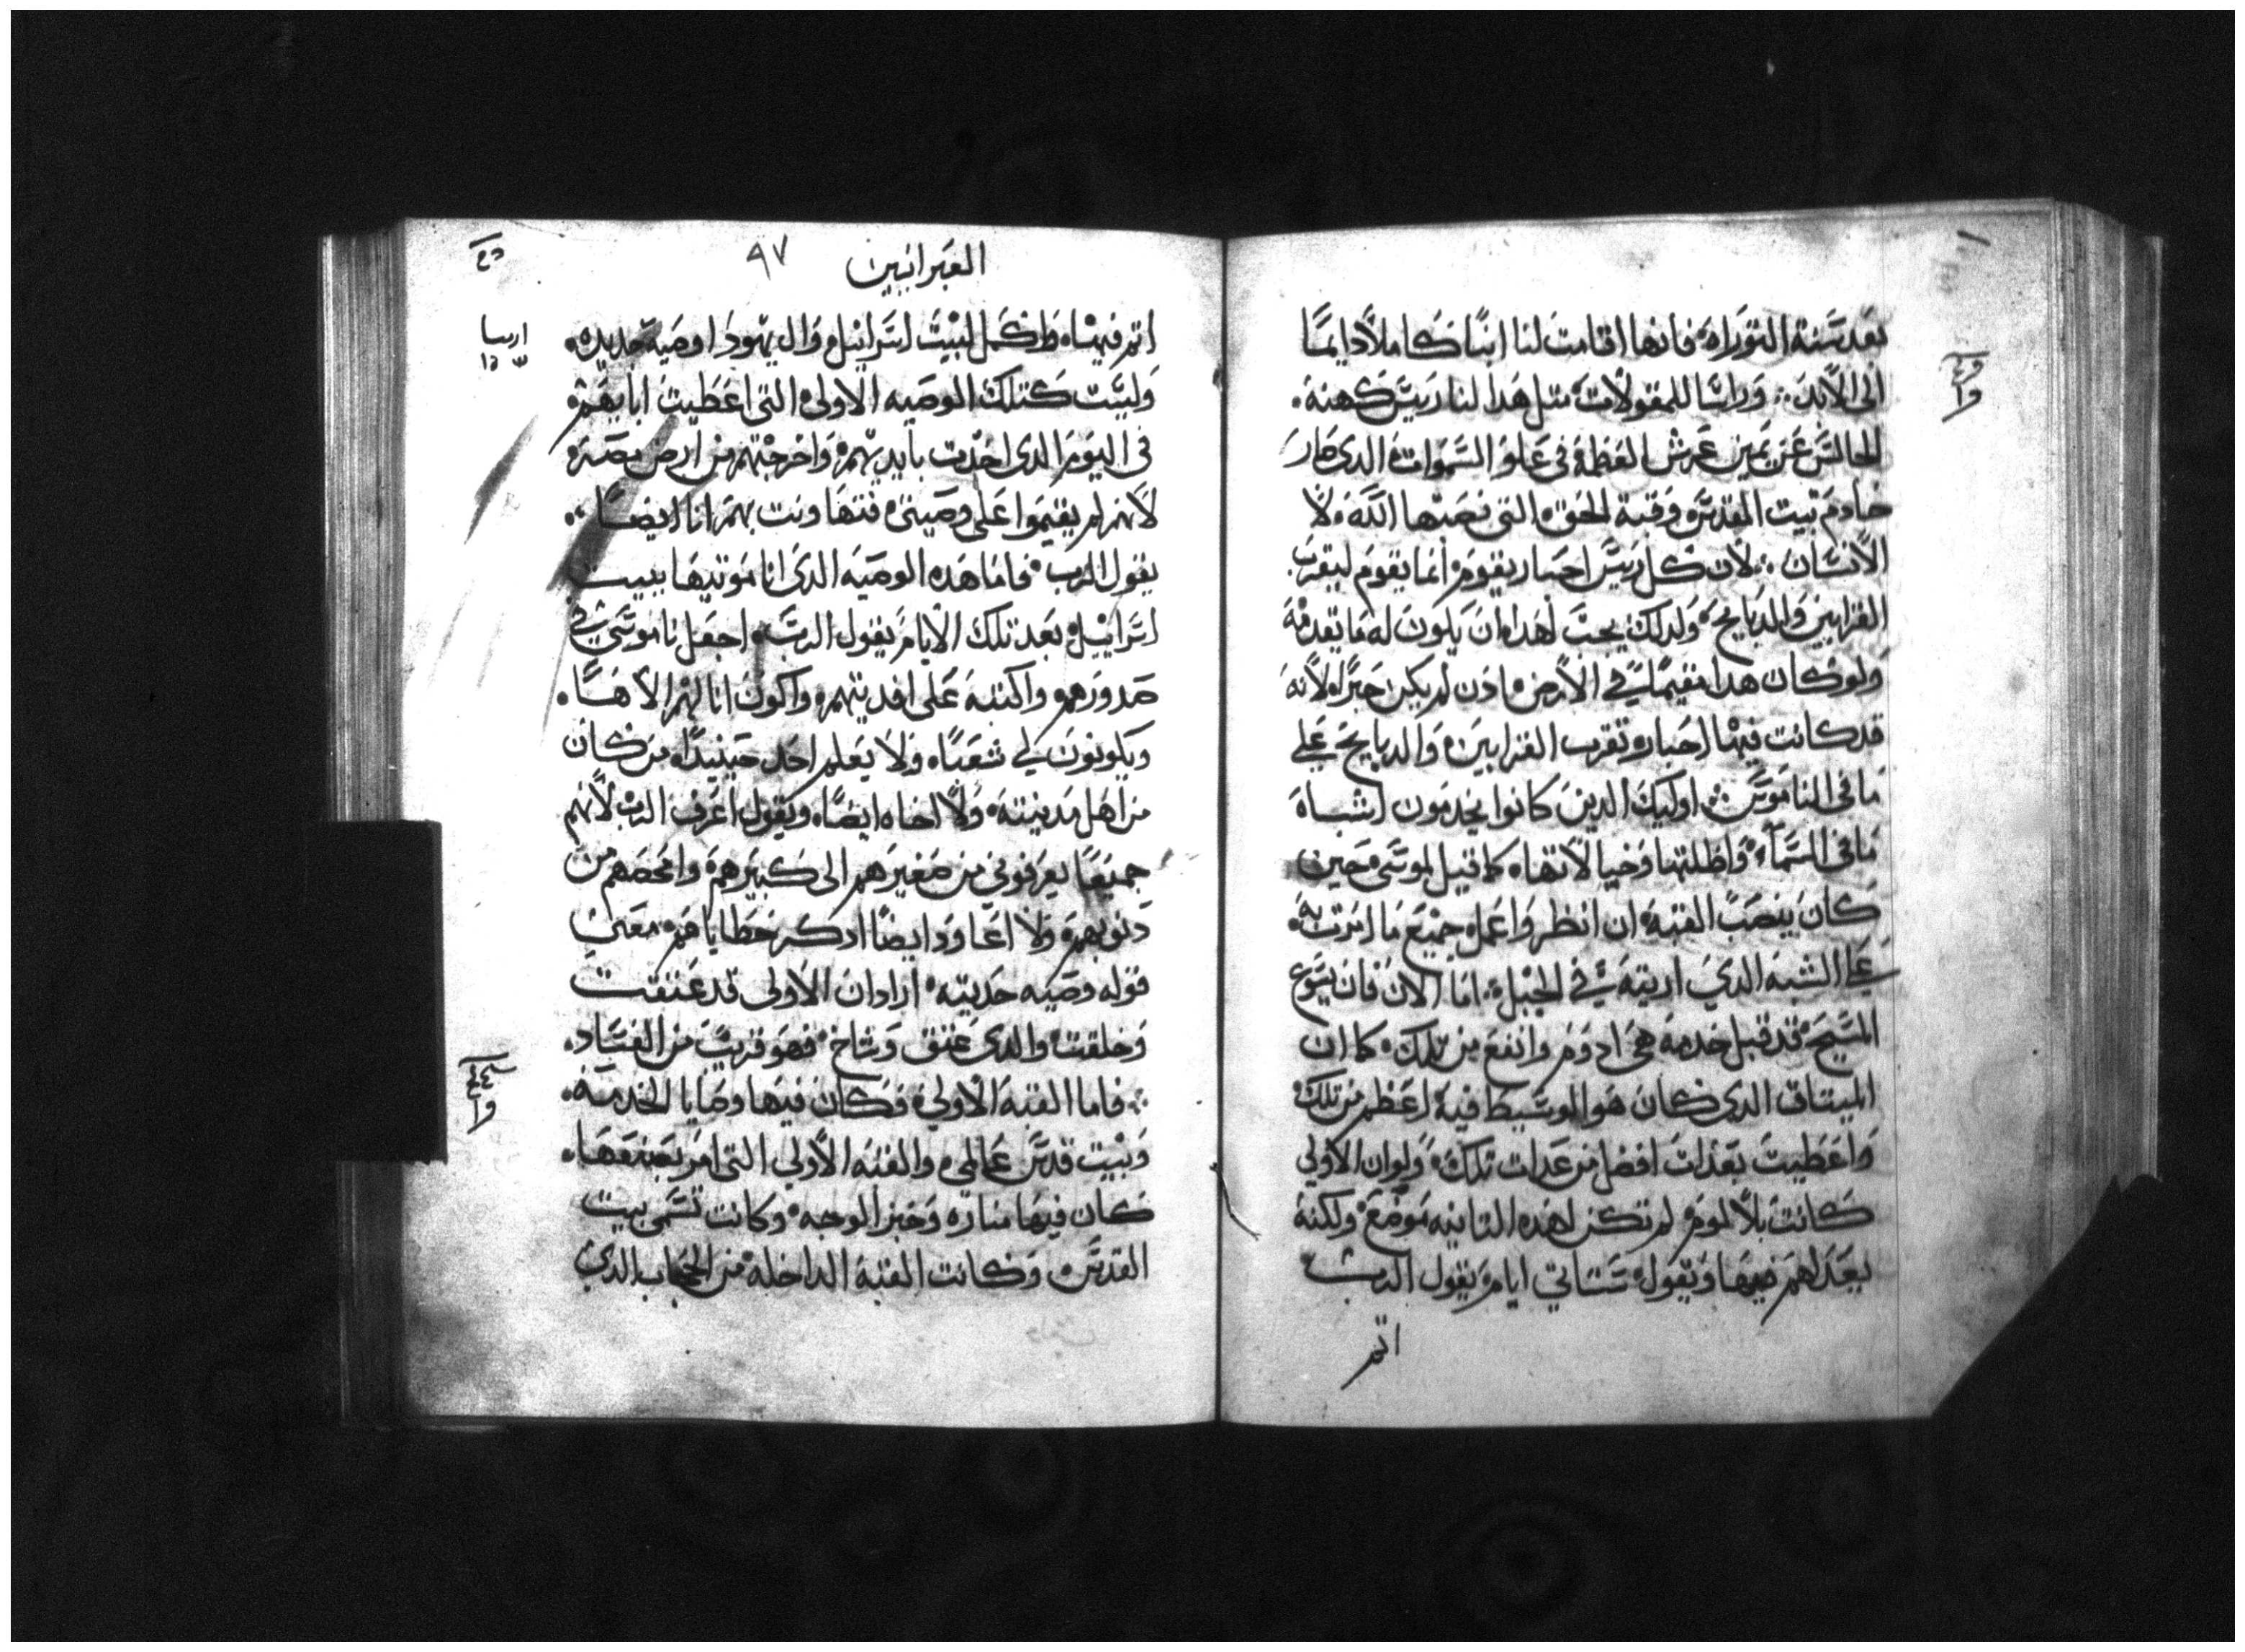 بعد سنة التوراه فانها اقامت لنا ابنًا كاملاً دايمًا
الى الابد وراسًا للمقولات متل هدا لنا رييس كهنه
الجالس عن يمين عرش العظمة فى علو السموات الدى صار
خادم بيت المقدس وقبة الحق التى نصبها الله لا
الانسان لان كل رييس احبار يقوم انما يقوم ليقرب
القرابين والدبايح ولدلك يجب لهدا ان يكون له ما يقدمه
ولو كان هدا مقيمًا في الارض ادن لم يكن حبرًا لانه
قد كانت فيها احبار تقرب القرابين والدبايح على
ما فى الناموس اوليك الدين كانوا يخدمون اشباه
ما فى السماء واظلتها وخيالاتها كما قيل لموسى حين
كان ينصب القبه ان انظر واعمل جميع ما امرت به
على الشبه الدي اريته في الجبل اما الان فان يسوع
المسيح قد قبل خدمه هى ادوم وانفع من تلك كما ان
الميتاق الدي كان هو الوسيط فيه اعظم من تلك
واعطيت بعدات افضل من عدات تلك ولو ان الاولي
كانت بلا لوم لم تكن لهده التانيه موضع ولكنه
بعدلهم فيها ويقول ستاتي ايام يقول الرب
اتم
العبرانيين
٩٧
اتم فيها واكمل لبيت اسراييل وال يهودا وصيه جديده
وليست كتلك الوصيه الاولى التى اعطيت ابايهم
فى اليوم الدى اخدت بايديهم واخرجتهم من ارض مصر
لانهم لم يقيموا على وصيتى فتهاونت بهم انا ايضًا
يقول الرب فاما هده الوصيه الدى انا موتيها بيت
اسراييل بعد تلك الايام يقول الرب اجعل ناموسي في
صدورهم واكتبه على افديتهم واكون انا لهم الاهًا
ويكونون لي شعبًا ولا يعلم احد حينيدًا من كان
من اهل مدينته ولا اخاه ايضًا ويقول اعرف الرب لانهم
جميعًا يعرفوني من صغيرهم الى كبيرهم وامحصهم من
دنوبهم ولا اعاود ايضًا ادكر خطاياهم معنى
قوله وصيه حديته اراد ان الاولى قد عتقت
وخلقت والدى عتق وشاخ فهو قريب من الفساد
فاما القبه الاولي فكان فيها وصايا الخدمه
وبيت قدس عالمي والقبه الاولي التى امر بصنعها
كان فيها مناره وخبز الوجه وكانت تسمى بيت
القدس وكانت القبه الداخله من الحجاب الدي